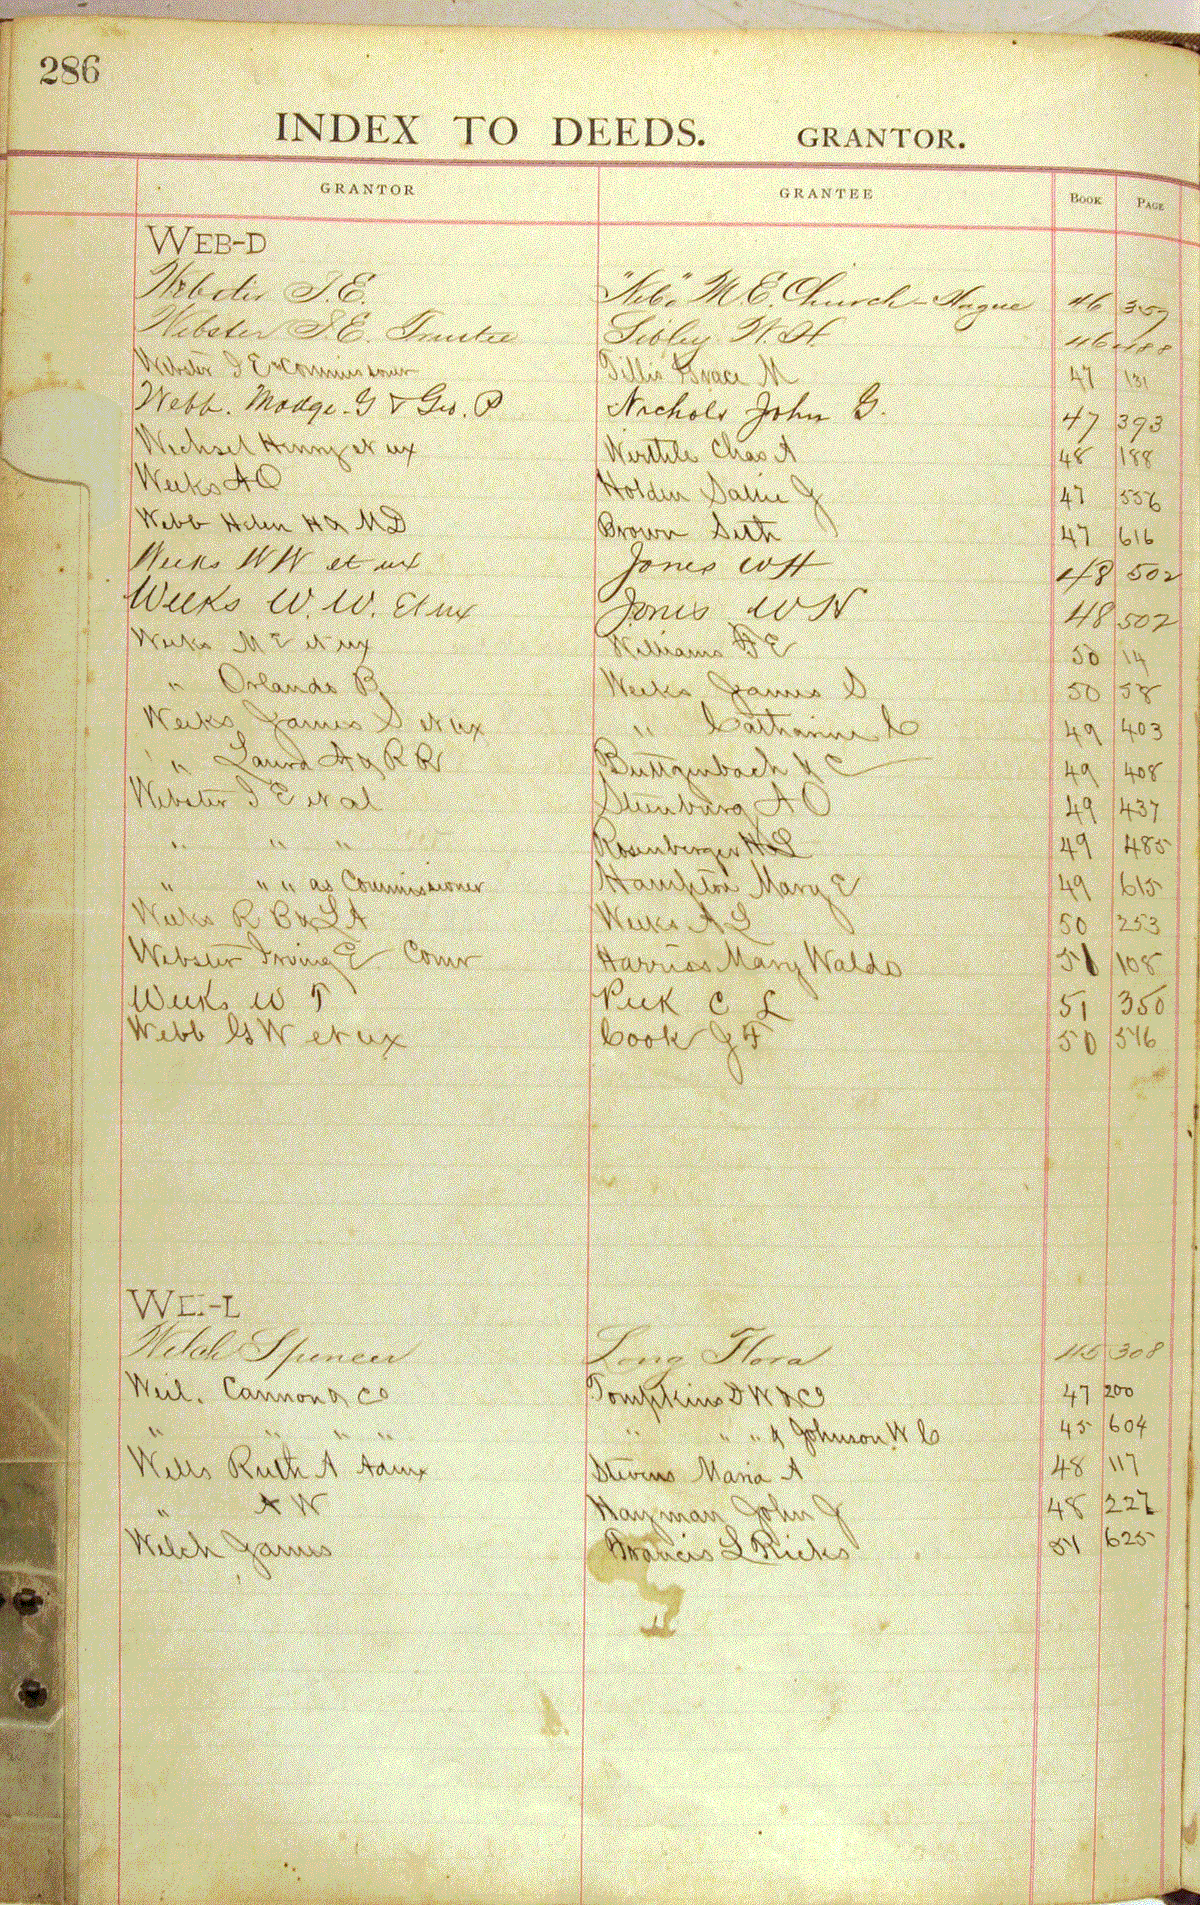 286
INDEX TO DEEDS. GRANTOR.
GRANTOR GRANTEE BOOK PAGE
WEB-D
Webster I. E. "Nebo" M. E. Church - Hague 46 359
Webster I. E. Trustee Sibley W. H. 46 488
Webster I E Commissioner Tillis Grace M 47 131
Webb. Madge. G & Geo. P Nichols John G. 47 393
Wechsel Henry et ux Werthle Chas A 48 188
Weeks A O Holden Sallie J 47 556
Webb Helen H & M D Brown Seth 47 616
Weeks W W et ux Jones W H 48 502
Weeks W. W. Et ux Jones W H 48 502
Weeks M E et ux Williams H E 50 14
" Orlando B, Weeks James S 50 58
Weeks James S et ux " Catharine C 49 403
" Laura A & R B Buttgenbach H C 49 408
Webster I E et al Steenburg A O 49 437
" " " Rosenberger H L 49 485
" " " as Commissioner Hampton Mary E 49 615
Weeks R B & L A Weeks A L 50 253
Webster Irving E Comr Harriss Mary Waldo 51 108
Weeks W T Peek C L 51 350
Webb G W et ux Cook J F 50 546
WEI-L
Welch Spencer Long Flora 45 308
Weil. Cannon & Co Tompkins D W & Co 47 200
" " " " " " " & Johnson W C 45 604
Wells Ruth A Admx Stevens Maria A 48 117
" A W Hayman John J 48 227
Welch James Francis L Ricks 51 625